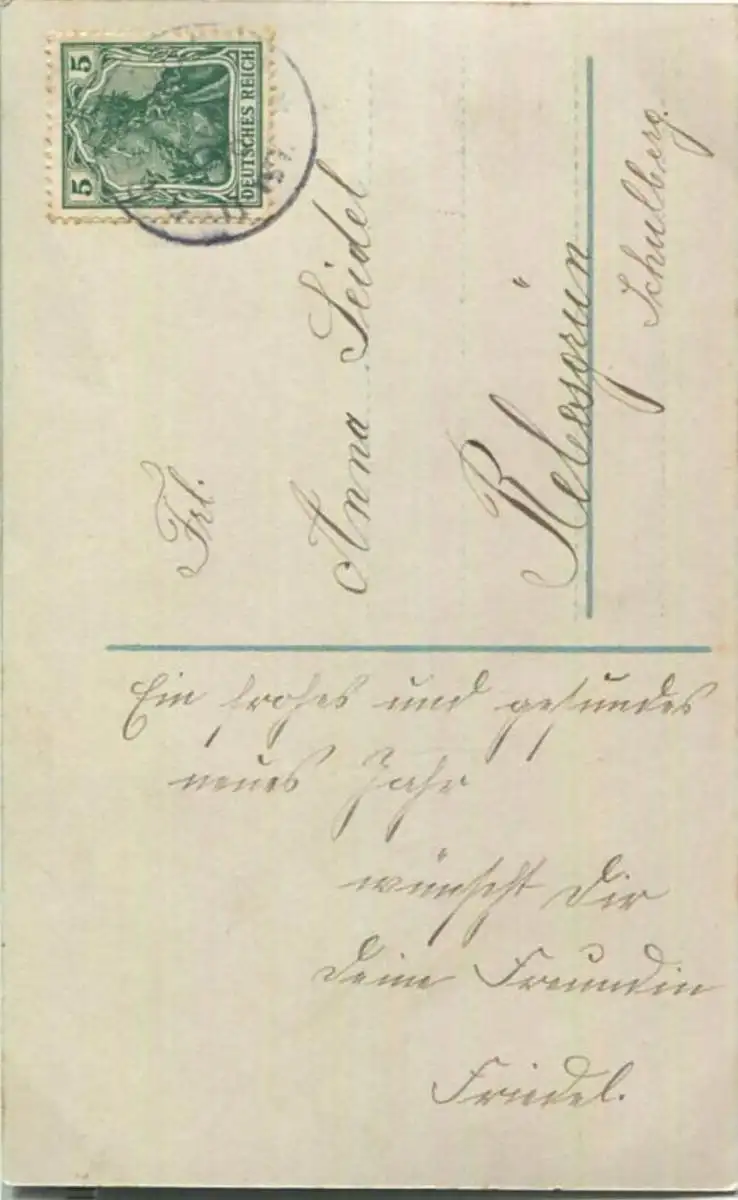 5 5
DEUTSCHES REICH
Frl.
Anna Seidel
Rebesgrün
Schulberg.
Ein frohes und gesundes
neues Jahr
wünscht Dir
Deine Freundin
Friedel.